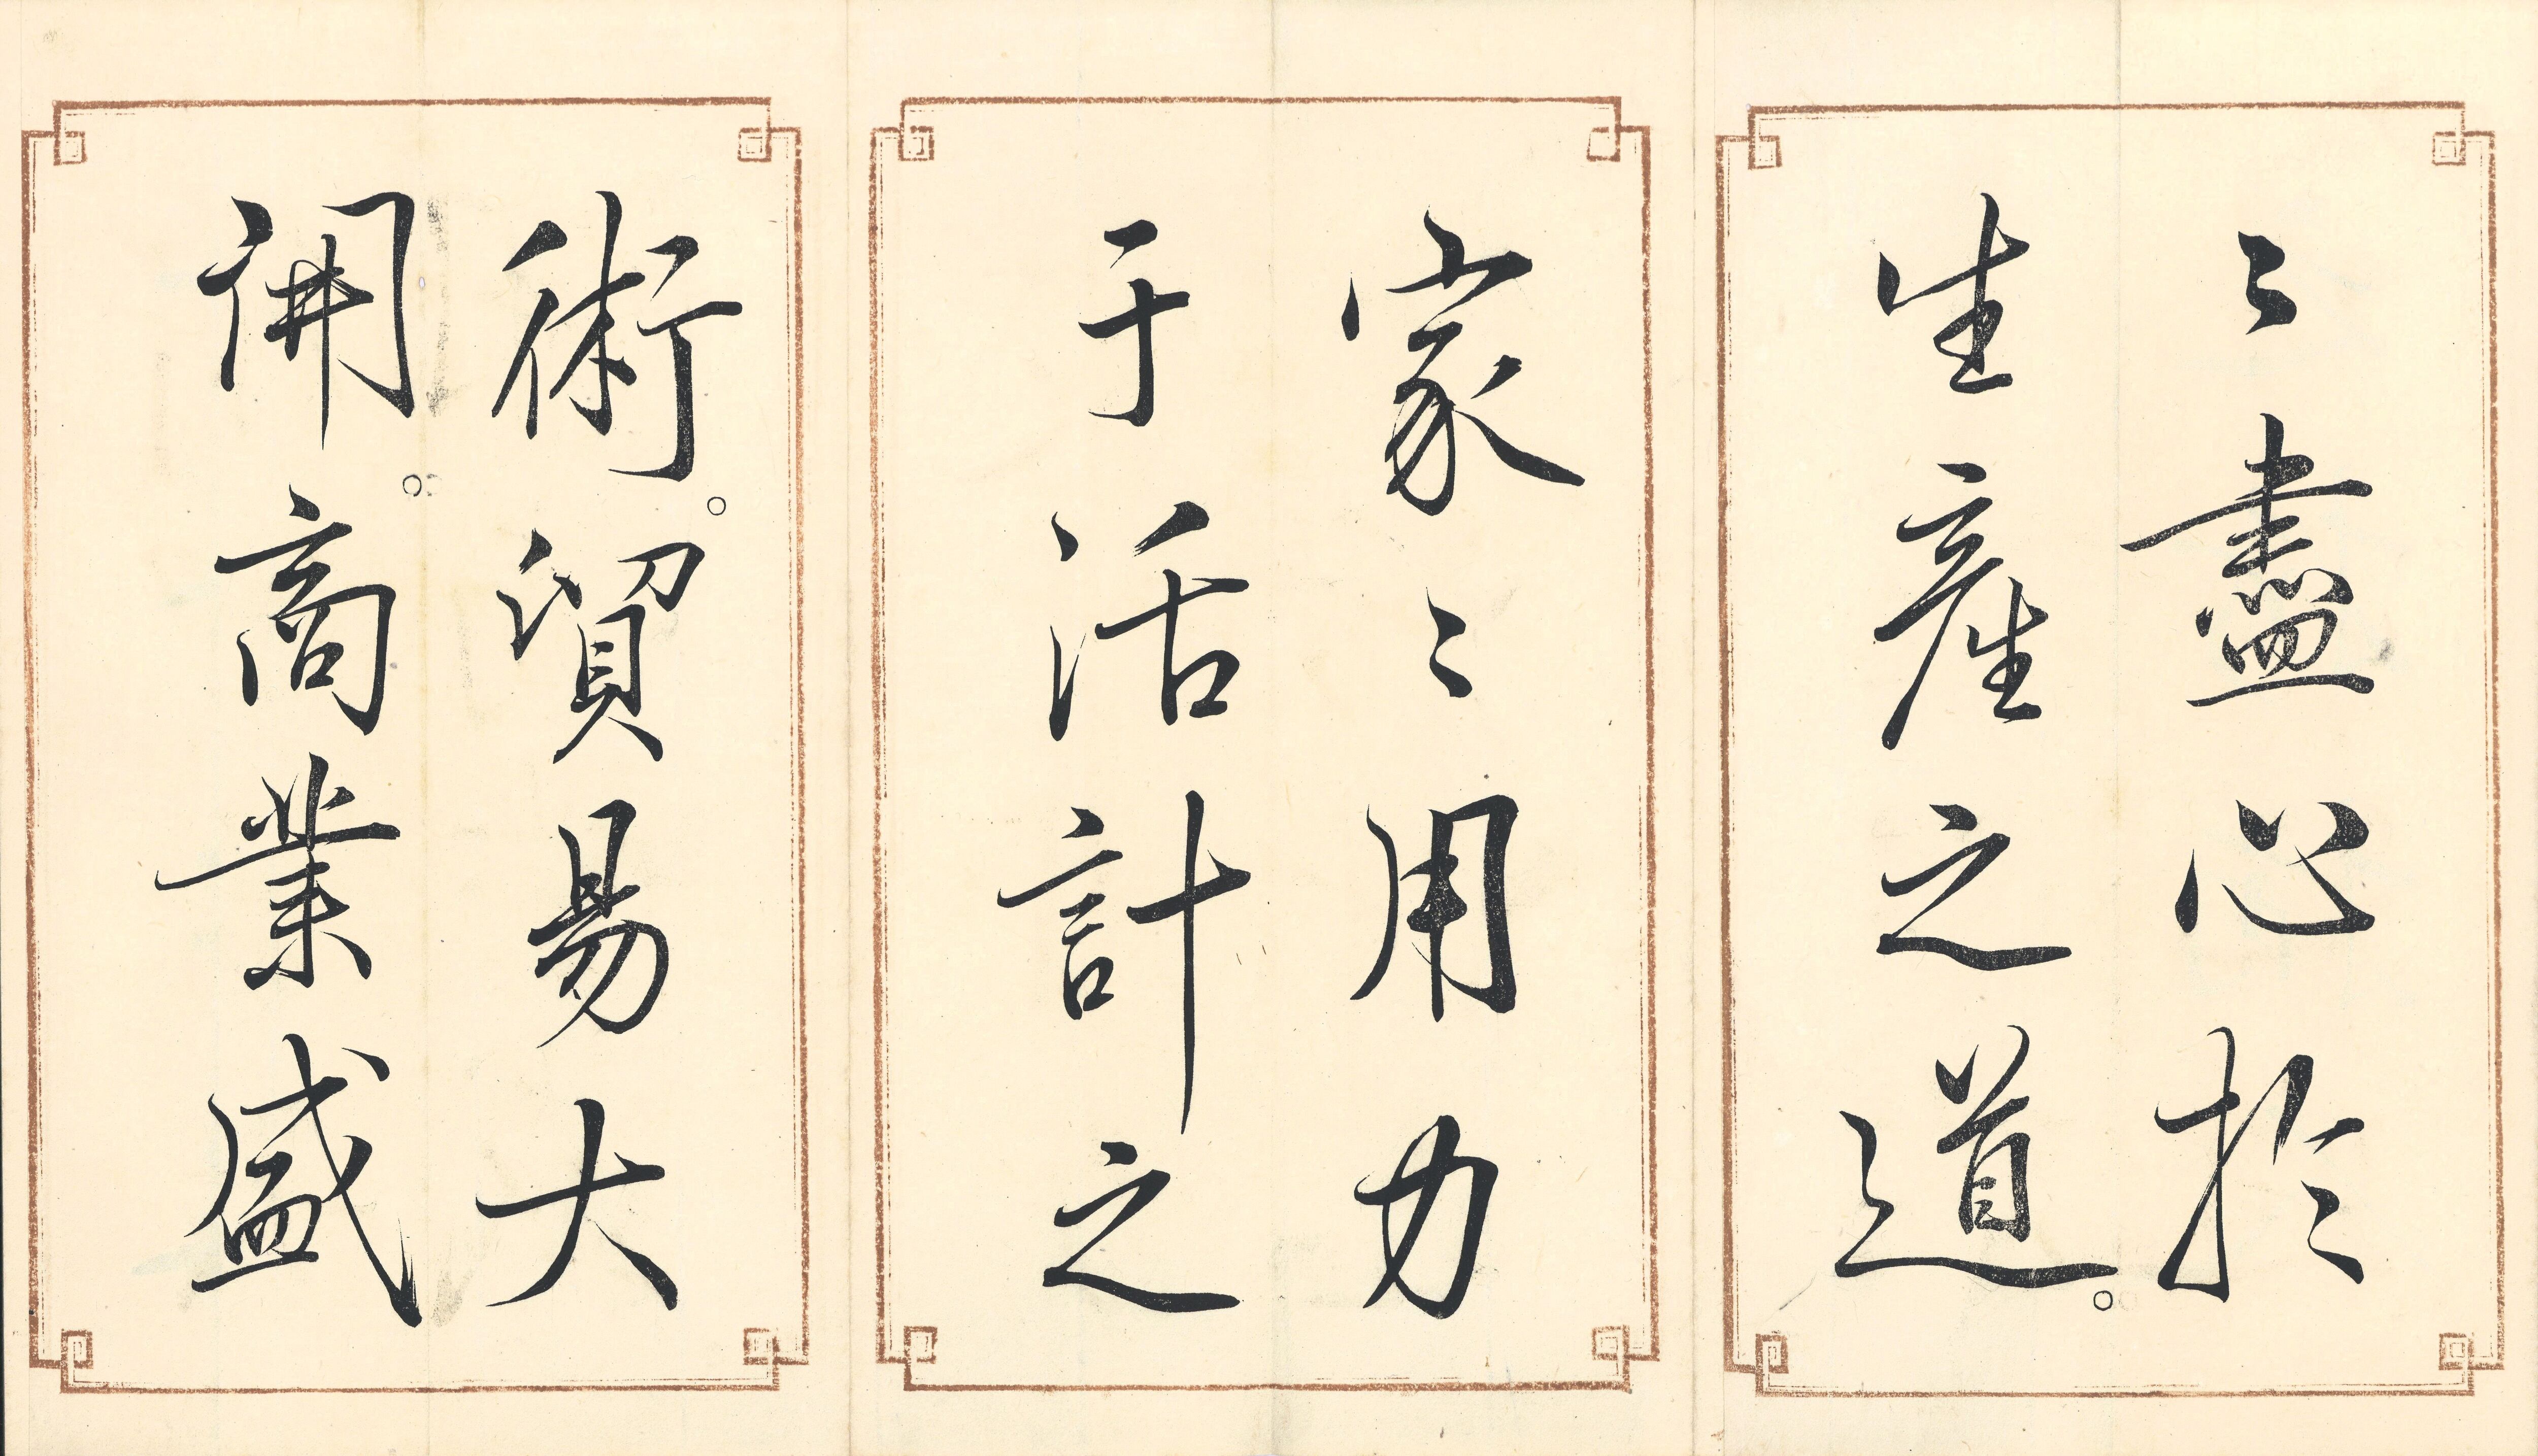 〻盡心於
生產之道。
家〻用力
于活計之
術。貿易大
開。商業盛